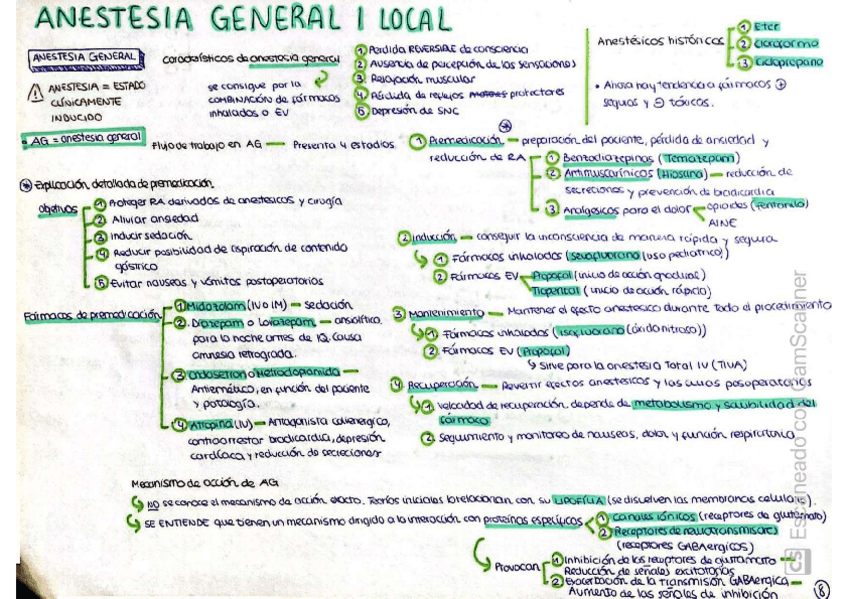 ANESTESIA GENERAL I LOCAL
ANESTESIA GENERAL
⚠ ANESTESIA = ESTADO
CLÍNICAMENTE
INDUCIDO
características de anestesia general
se consigue por la
COMBINACIÓN de fármacos
inhalados o EV
① Perdida REVERSIBLE de consciencia
② Ausencia de percepción de las sensaciones
③ Relajación muscular
④ Pérdida de reflejos protectores
⑤ Depresión de SNC
Anestésicos históricos
① Eter
② Cloroformo
③ Ciclopropano
• Ahora hay tendencia a fármacos ⊕
seguros y ⊖ tóxicos.
• AG = anestesia general
Flujo de trabajo en AG — Presenta 4 estadios
① Premedicación — preparación del paciente, pérdida de ansiedad y
reducción de RA
① Benzodiazepinas (Temazepam)
② Antimuscarínicos (Hiosina) — reducción de
secreciones y prevención de bradicardia
③ Analgésicos para el dolor
opioides (fentanilo)
AINE
② Inducción — conseguir la inconsciencia de manera rápida y segura
① Fármacos inhalados (sevoflurano (uso pediatrico))
② Fármacos EV
Propofol (inicio de acción gradual)
Tiopental (inicio de acción rápido)
3 Mantenimiento — Mantener el efecto anestesico durante todo el procedimiento
① Fármacos inhalados (isoflurano (óxido nitroso))
② Fármacos EV (Propofol)
↳ Sirve para la anestesia Total IV (TIVA)
④ Recuperación — Revertir efectos anestesicos y los curos posoperatorios
① Velocidad de recuperación depende de metabolismo y solubilidad del
fármaco
② Seguimiento y monitoreo de nauseas, dolor y función respiratoria
⊛ Explicación detallada de premedicación
objetivos
① Proteger RA derivados de anestesicos y cirugía
② Aliviar ansiedad
③ Inducir sedación
④ Reducir posibilidad de aspiración de contenido
gástrico
⑤ Evitar nauseas y vómitos postoperatorios
Fármacos de premedicación
① Midazolam (IV o IM) — sedación
② Diazepam o Lorazepam — ansiolítico,
para la noche antes de IQ. Causa
amnesia retrograda.
③ Ondasetron o Metroclopamida —
Antiemético, en función del paciente
y patología.
④ Atropina (IV) — Antagonista colinergico,
contrarrestar bradicardia, depresión
cardíaca y reducción de secreciones
Mecanismo de acción de AG
↳ NO se conoce el mecanismo de acción exacto. Teorías iniciales lo relacionan con su LIPOFÍLIA (se disuelven las membranas celulares).
↳ SE ENTIENDE que tienen un mecanismo dirigido a la interacción con proteínas específicas
① Canales iónicos (receptores de glutamato)
② Receptores de neurotransmisores
(receptores GABAergicos)
Provocan
① Inhibición de los receptores de glutamato —
Reducción de señales excitatorias
② Exacerbación de la transmisión GABAergica —
Aumento de las señales de inhibición
⑧
CS Escaneado con CamScanner